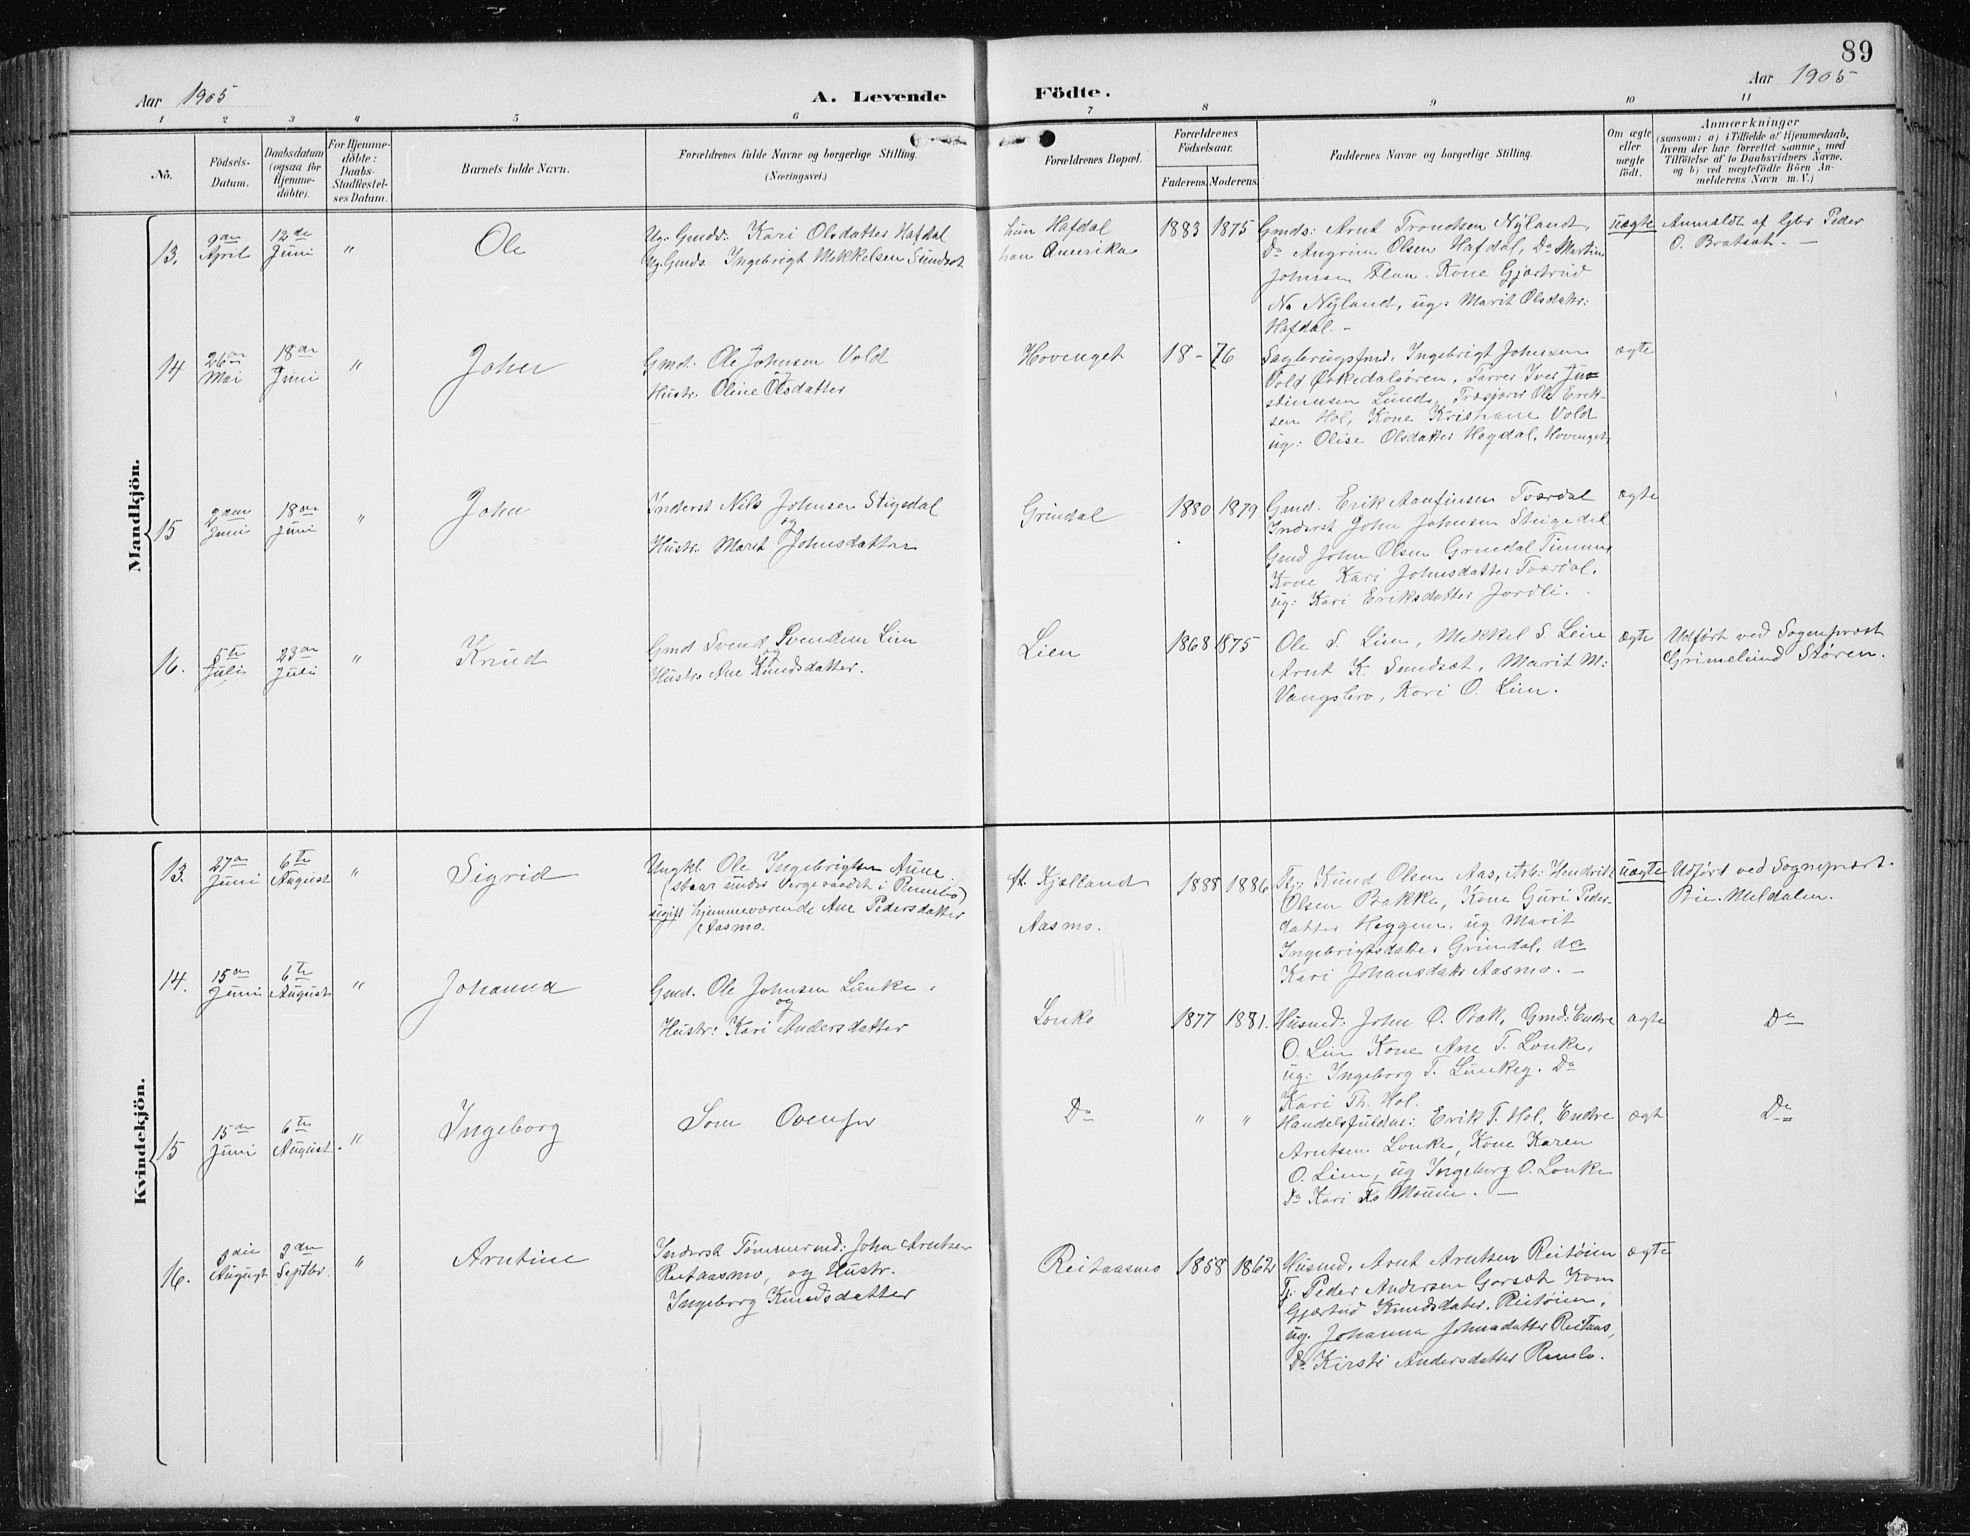 89
Aar 1905
A. Levende Födte.
Aar 1905
1 2 3 4 5 6 7 8 9 10 11
No.
Födsels-Datum.
Daabsdatum (ogsaa for Hjemme-döbte).
For Hjemme-döbte: Daabs-Stadfæstel-ses Datum.
Barnets fulde Navn.
Forældrenes fulde Navne og borgerlige Stilling.
(Næringsvei.)
Forældrenes Bopæl.
Forældrenes Födselsaar.
Faderens. Moderens.
Faddernes Navne og borgerlige Stilling.
Om ægte eller uægte födt.
Anmærkninger
(saasom: a) i Tilfælde af Hjemmedaab,
hvem der har forrettet samme, med
Tilföielse af to Daabsvidners Navne,
og b) ved uægtefödte Börn An-
melderens Navn m. V.)
Mandkjön.
13.
April
12te Juni
"
Ole
Ug. Gmdr: Kari Olsdatter Hafdal
Ug. Gmds. Ingebrigt Mekkelsen Sundset
hun Hafdal
han Amerika
1883 1875
Gmds: Arnt Trondsen Nyland
Do Arngrim Olsen Hafdal, Do Martin
Johnsen Flaa. Kone Gjertrud
N. Nyland, ug: Marit Olsdatr:
Hafdal. -
uægte
Anmeldt af Gbr Peder
O. Bratset. -
14
26de Mai
18de Juni
"
John
Gmd. Ole Johnsen Vold
og
Hustr. Oline Olsdatter
Hovenget
18 - 76
Sagbrugsfmd. Ingebrigt Johnsen
Vold Orkedalsören, Farver Iver Ju-
stinusen Lund, Træskjærer Ole Erik-
sen Hol, Kone Kristiane Vold
ug: Olise Olsdatter Hogdal, Hovenget
ægte
15
2den Juni
18de Juni
"
John
Inderst Nils Johnsen Stigedal
og
Hustr. Marit Johnsdatter
Grindal
1880 1879
Gmd. Erik Aanfinsen Tværdal
Inderst John Johnsen Steigedal
Gmd John Olsen Grindal
Kone Kari Johnsdatter Tværdal.
ug: Kari Eriksdatter Jordli.
ægte
16.
5te Juli
23de Juli
"
Knud
Gmd Svend Svendsen Lien
og
Hustr. Ane Knudsdatter.
Lien
1868 1875
Ole S. Lien, Mekkel S. Lien
Arnt K. Sundset, Marit M:
Vangslero, Kari O. Lien.
ægte
Udført ved Sogneprest
Grimelund Støren.
Kvindekjön.
13.
27de Juni
6te August
"
Sigrid
Ungkl. Ole Ingebrigtsen Aune.
(staar under Vergeraadet i Rennebo)
ugift hjemmeværende Ane Pedersdatter
Aasmo.
St. Kjælland
Aasmo.
1888 1886
Tj: Knud Olsen Aas, Arb: Hendrik
Olsen Bakke, Kone Guri Peders-
datter Heggem. ug Marit
Ingebrigtsdatter Grindal, do
Kari Johansdatr Aasmo. -
uægte
Udført ved Sogneprest
Bie. Meldalen.
14.
15de Juni
6te August
"
Johanna
Gmd. Ole Johnsen Lunke.
og
Hustr: Kari Andersdatter
Lonko
1877 1881.
Husmd: John O. Bak, Gmd: Endre
O. Lien Kone Ane T. Lonke,
ug: Ingeborg T. Lunkeg. Do
Kari Th. Hol.
ægte
Do
15
15de Juni
6te August.
"
Ingeborg
Som Ovenfor
Do
" "
Handelsfuldm: Erik T. Hol, Endre
Arntsen Lonke, Kone Karen
O. Lien, ug Ingeborg O. Lonke
Do Kari
ægt
Do
16.
August
Septbr.
"
Arntine
Inderst Tømmermd: John Arntsen
Reitaasmo, og Hustr.
Ingeborg Knudsdatter
Reitaasmo
1858 1862
Husmd. Arnt Arntsen Reitöien
Tj: Peder Andersen Gorset Kone
Gjertrud Knudsdater. Reitöien,
ug. Johanna Johnsdatter Reitaas,
Do Kirsti Andersdatter Ramlo.
ægte